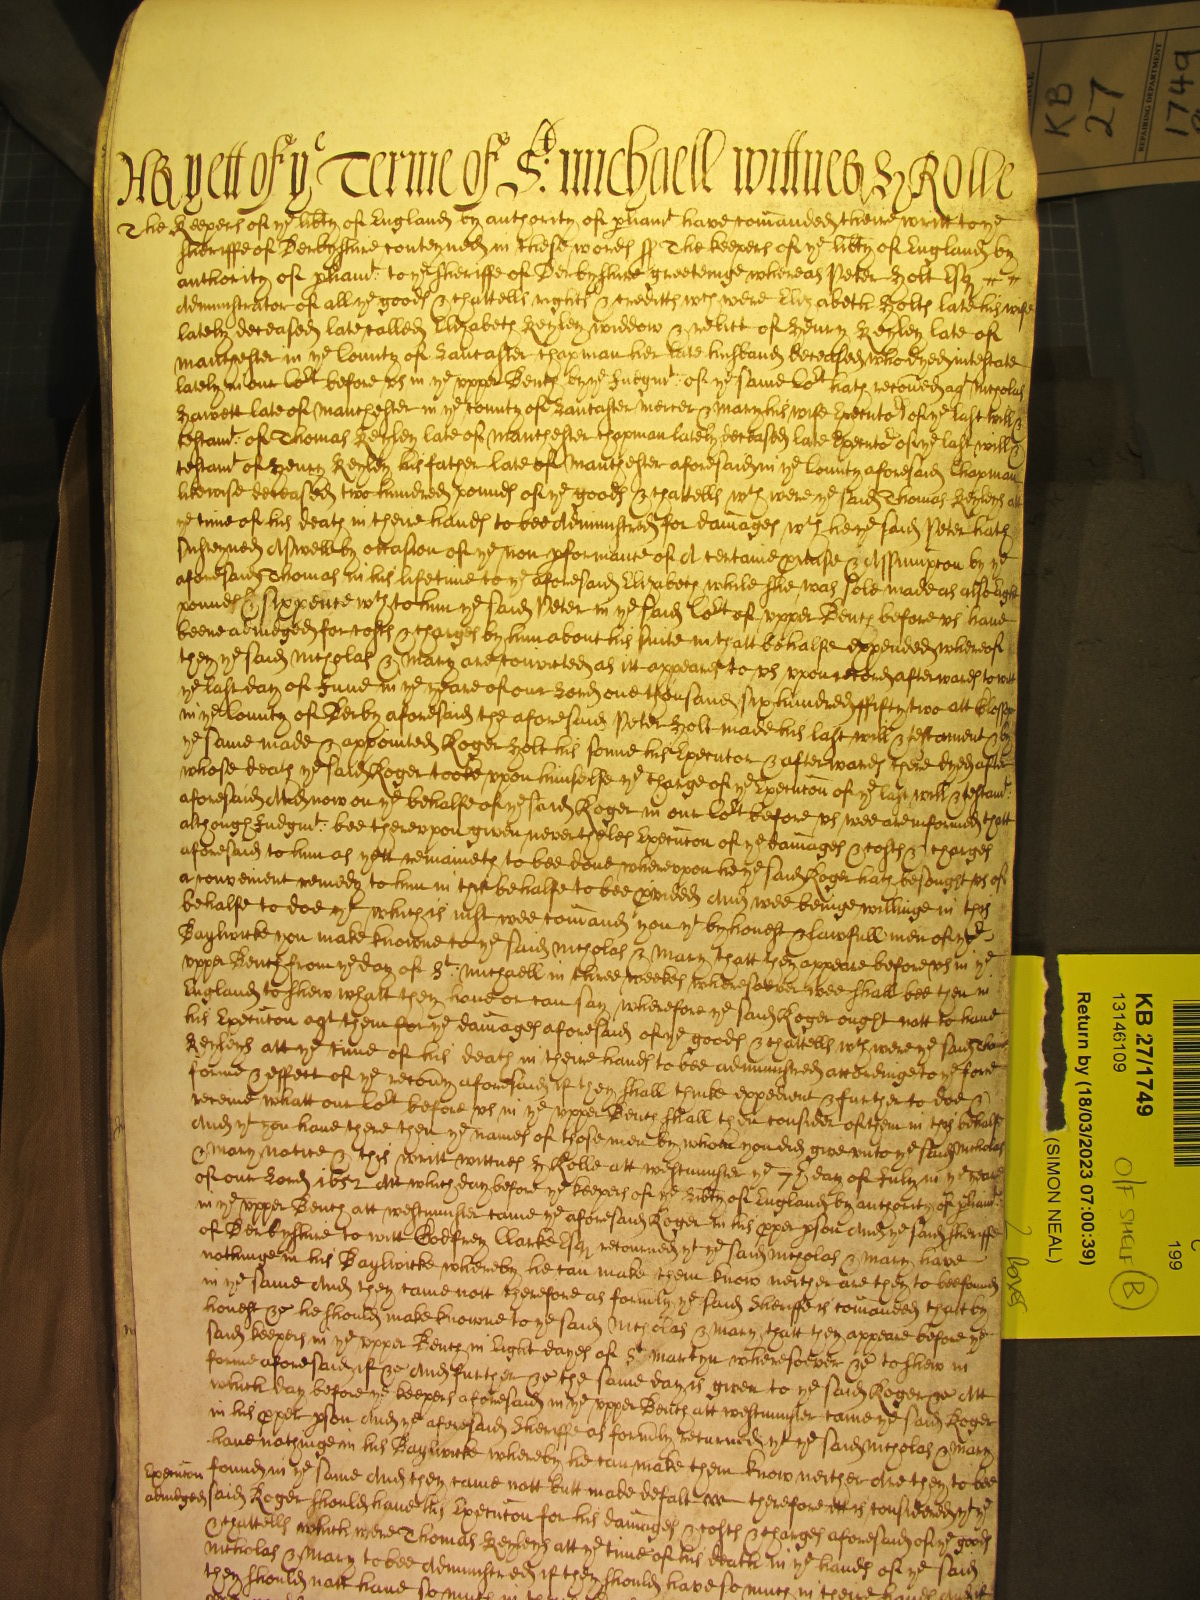 As yett of ye Terme of St. Michaell wittnes H Rolle
The Keepers of ye libty of England by authority of pliamt have comanded theire writt to ye
Sheriffe of Derbyshire conteyned in these words ss The keepers of ye libty of England by
authority of pliamt: to ye Sheriffe of Derbyshire greeteinge whereas Peter Holt Esq
Administrator of all ye goods & chattells rights & creditts wch were Elizabeth Holts late his wife
lately deceased late called Elizabeth Keyley widdow & relict of Henry Keyley late of
Manchester in ye County of Lancaster chapman her late husband deceased who dyed intestate
lately in our Cort before us in ye upper Bench by ye Judgmt: of ye same Cort hath recoued agt Nicholas
Hawett late of Manchester in ye County of Lancaster mercer & Mary his wife Executors of ye last will &
testamt: of Thomas Keyley late of Manchester chapman lately deceased late Executor of ye last will &
testamt of Henry Keyley his father late of Manchester aforesaid in ye County aforesaid Chapman
likewise deceased two hundred pounds of ye goods & chattells wch were ye said Thomas Keyleys att
ye time of his death in theire hands to bee Administred for damages wch he ye said Peter hath
susteyned Aswell by occasion of ye non pformance of A certaine pmise & Assumpcon by ye
aforesaid Thomas in his life time to ye aforesaid Elizabeth while she was sole made as also Eight
pounds & sixpence wch to him ye said Peter in ye said Cort of upper Bench before us have
beene adiudged for costs & charges by him about his suite in thatt behalfe expended whereof
they ye said Nicholas & Mary are convicted as itt appeares to us upon record afterwards to witt
ye last day of June in ye yeare of our Lord one thousand six hundred ffifty two att
in ye County of Derby aforesaid the aforesaid Peter Holt made his last will & testament & by
ye same made & appointed Roger Holt his sonne his Executor & afterwards there dyed after
whose death ye said Roger tooke uppon himselfe ye charge of ye Execucon of ye last will & testamt:
aforesaid And now on ye behalfe of ye said Roger in our Cort before us wee are informed thatt
although Judgmt: bee thereuppon given neverthelesse Execucon of ye damages & costs & charges
aforesaid to him as yett remaineth to bee done whereuppon he ye said Roger hath besought us of
a convenient remedy to him in this behalfe to bee pvided And wee beinge willinge in this
behalfe to doe yt which is iust wee comand you yt by honest & lawfull men of yor
Baylwicke you make knowne to ye said Nicholas & Mary thatt they appeare before us in ye
upper Bench from ye day of St: Michaell in three weekes wheresoever wee shall bee then in
England to shew whatt they have or can say wherefore ye said Roger ought nott to have
his Execucon agt them for ye damages aforesaid of ye goods & chattells wch were ye said Thomas
Keyleys att ye time of his death in theire hands to bee administred accordinge to ye force
forme & effect of ye recouy aforesaid if they shall thinke expedient & further to doe &
receive whatt our Cort before us in ye upper Bench shall then consider of them in this behalfe
And yt you have there then ye names of those men by whom you did give unto ye said Nicholas
& Mary notice & this writt wittnes H Rolle att westminster ye 7th day of July in ye yeare
of our Lord 1652 Att which day before ye keepers of ye Libty of England by authority of pliamt:
in ye upper Bench att westminster came ye aforesaid Roger in his pper pson And ye said Sheriffe
of Derbyshire to witt Godfrey Clarke Esq returned yt ye said Nicholas & Mary have
nothinge in his Baylwicke whereby he can make them know neither are they to bee found
in ye same And they came nott therefore as formly ye said Sheriffe is comanded thatt by
honest &c he should make knowne to ye said Nicholas & Mary thatt they appeare before ye
said keepers in ye upper Bench in Eight dayes of St Martyn wheresoever &c to shew in
forme aforesaid if &c And further &c the same day is given to ye said Roger &c Att
which day before ye keepers aforesaid in ye upper Bench att westminster came ye said Roger
in his pper pson And ye aforesaid Sheriffe as formly returned yt ye said Nicholas & Mary
have nothinge in his Baylwicke whereby he can make them know neither Are they to bee
Execucon found in ye same And they came nott butt made defalt therefore itt is considered yt ye
adiudged said Roger should have his Execucon for his damages & costs & charges aforesaid of ye goods
& chattells which were Thomas Keyleys att ye time of his death in ye hands of ye said
Nicholas & Mary to bee Administred if they should have so much in theire hands And if
they should nott have so much in
KB
27
1749
REPAIRING DEPARTMENT
KB 27/1749
13146109
Return by (18/03/2023 07:00:39)
(SIMON NEAL)
O/F SHELF B
199
2 boxes